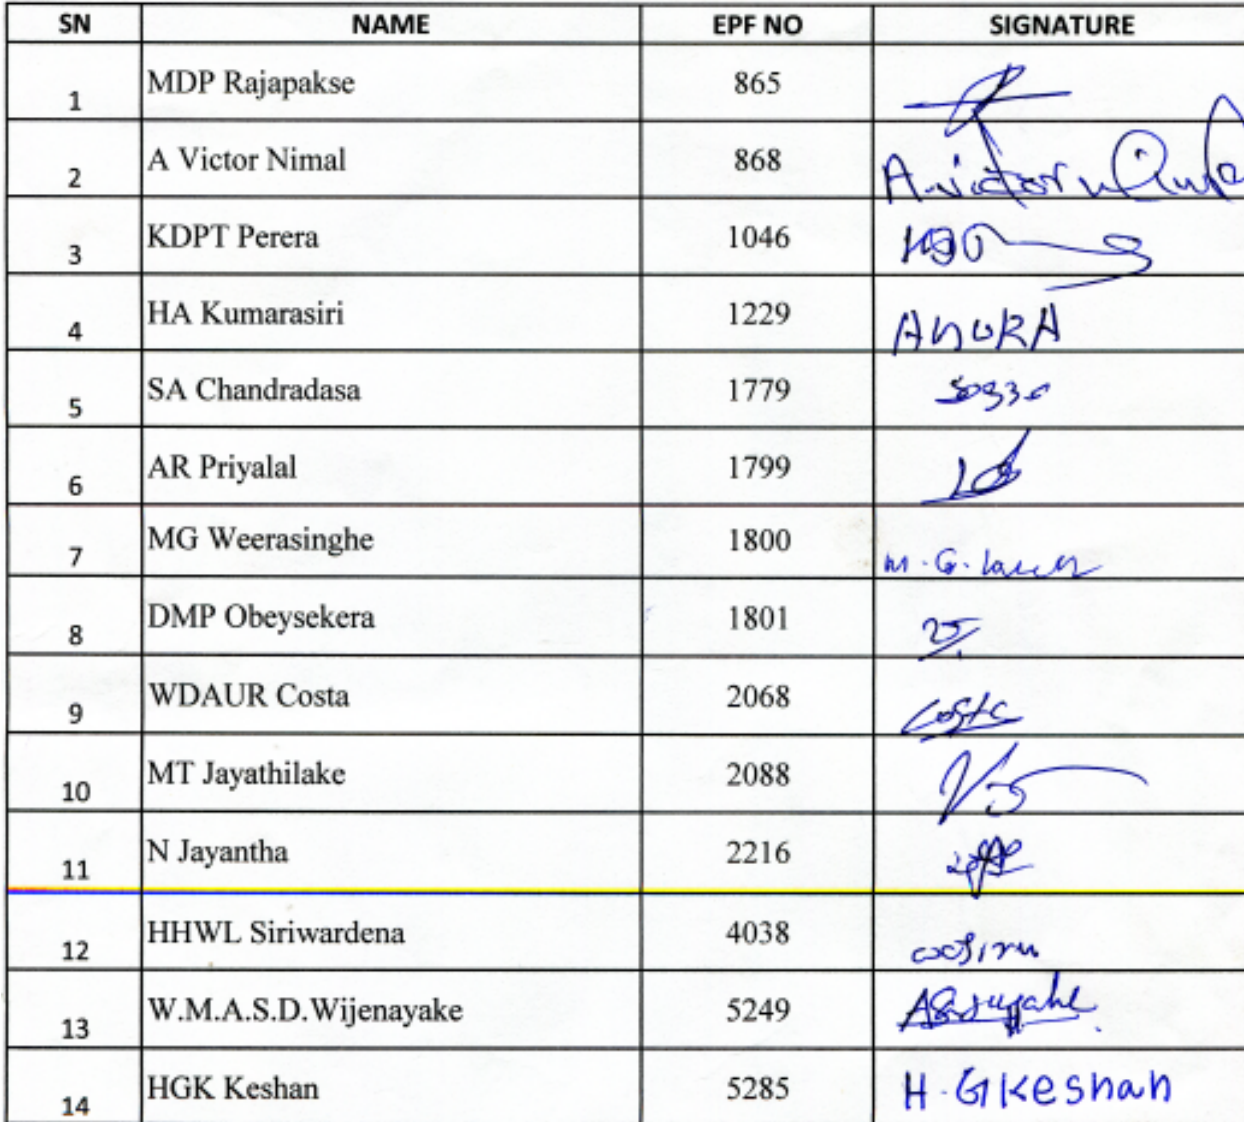 SN NAME EPF NO SIGNATURE
1 MDP Rajapakse 865
2 A Victor Nimal 868 A. Victor
3 KDPT Perera 1046
4 HA Kumarasiri 1229 ANURA
5 SA Chandradasa 1779
6 AR Priyalal 1799
7 MG Weerasinghe 1800 M. G.
8 DMP Obeysekera 1801
9 WDAUR Costa 2068 Costa
10 MT Jayathilake 2088
11 N Jayantha 2216
12 HHWL Siriwardena 4038
13 W.M.A.S.D.Wijenayake 5249
14 HGK Keshan 5285 H. G Keshan